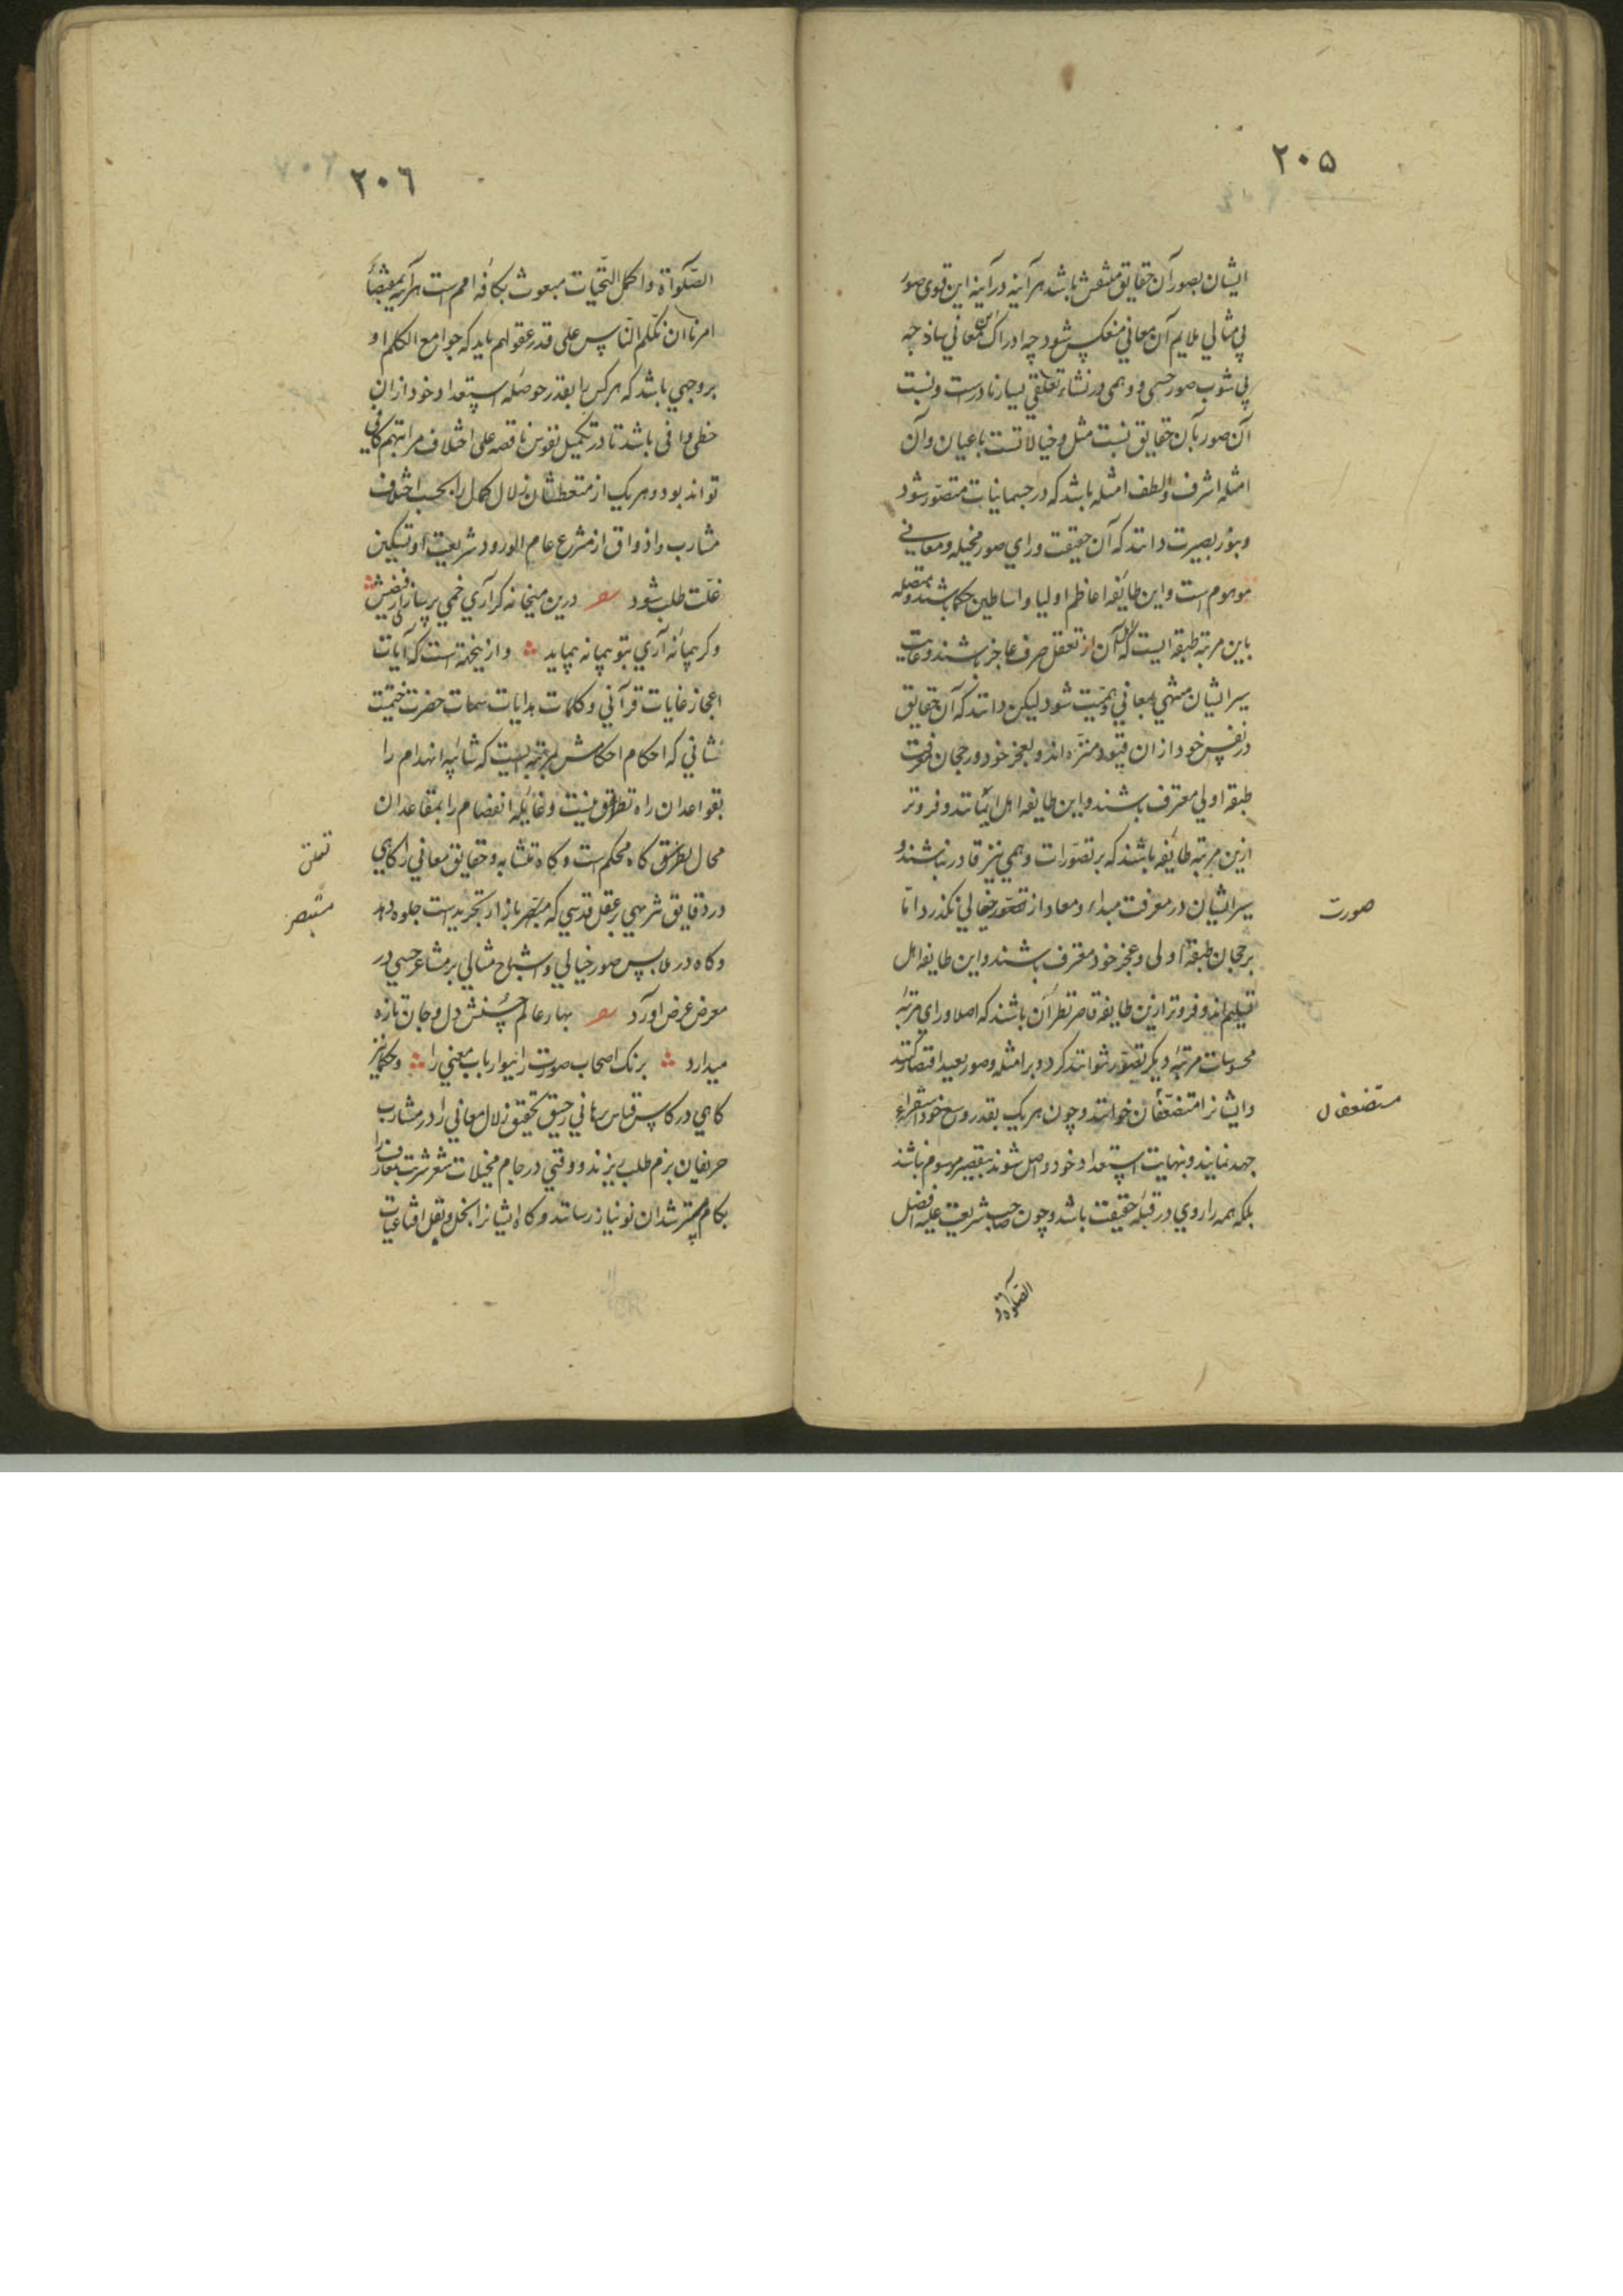 ۲۰۵
ایشان بصور آن حقایق منتقش باشد هر آینه در آینه این قوی صور
پی مثالی ملایم آن معانی منعکس شود چه ادراک این معانی ساذجه
بی شوب صور حسی و وهمی در نشاء تعلقی بسیار نادرست و نسبت
آن صور بآن حقایق نسبت مثل و خیالاتست باعیان و آن
امثله اشرف و الطف امثله باشد که در جسمانیات متصوّر شود
و بنور بصیرت دانند که آن حقیقت ورای صور مخیله و معانی
موهوم است و این طایفه اعاظم اولیا و اساطین حکما باشند و متصله
باین مرتبه طبقه ایست که اهل آن از تعقل صرف عاجز باشند و غایت
سیر ایشان منتهی بمعانی وهمیّت شود لیکن دانند که آن حقایق
در نفس خود از ان قیود منزّه اند و بعجز خود و رجحان معرفت
طبقه اولی معترف باشند و این طایفه اهل ایمانند و فروتر
ازین مرتبه طایفه باشند که بر تصوّرات وهمی نیز قادر نباشند و
سیر ایشان در معرفت مبداء و معاد از صور خیالی نکذرد امّا
صورت
برجحان طبقهٔ اولی و عجز خود معترف باشند و این طایفه اهل
تسلیم اند و فروتر ازین طایفه قاصر نظرآن باشند که اصلا ورای مرتبهٔ
محسوسات مرتبهٔ دیکر تصوّر نتوانند کرد و بر امثله و صور بعید اقتصار کنند
و ایشانرا مستضعفان خوانند و چون هر یک بقدر وسع خود استقراء
مستضعفان
جهد نمایند و بنهایت استعداد خود واصل شوند بتقصیر موسوم نباشند
بلکه همه را روی در قبلهٔ حقیقت باشد و چون صاحب شریعت علیه افضل
الصّلوٰة و
۲۰٦
الصّلوٰة و اکمل التّحیّات مبعوث بکافه امم است هر آینه بمقتضاء
امرنا ان نکلم النّاس علی قدر عقولهم باید که جوامع الکلم او
بر وجهی باشد که هر کس را بقدر حوصله استعداد خود از ان
حظی وافی باشد تا در تکمیل نفوس ناقصه علی اختلاف مراتبهم کافی
تواند بود و هر یک از متعطشان زلال کمال را بحسب اختلاف
مشارب و اذواق از مشرع عام الورود شریعت او تسکین
غلّت طلب شود درین میخانه کر آری خمی پر سازی از فیضش
و کر پیمانه آری بتو پیمانه پیماید و از ینجمله است که آیات
اعجاز غایات قرآنی و کلمات هدایات سمات حضرت ختمیّت
نشانی که احکام احکامش بمرتبه ایست که شائبه انهدام را
بقواعد ان راه تطرّق نیست و غائله انفصام را بمقاعد ان
محال تطرّق کاه محکم است و کاه متشابه و حقایق معانی را کاهی
تعلق
در دقایق تنزیهی بر عقل قدسی که متبصّر بازار تجریدست جلوه دهد
متبصر
و کاه در ملابس صور خیالی و اشباح مثالی بر مشاعر حسی در
معرض عرض اورد بهار عالم حسنش دل و جان تازه
میدارد برنک اصحاب صورت را ببو ارباب معنی را و حکما نیز
کاهی در کاس قیاس برهانی رحیق تحقیق زلال معانی را در مشارب
حریفان بزم طلب ریزند و وقتی در جام مخیلات شعر شربت معارف را
بکام مسترشدان نو نیاز رسانند و کاه ایشانرا بنخل و نقل اقناعیات